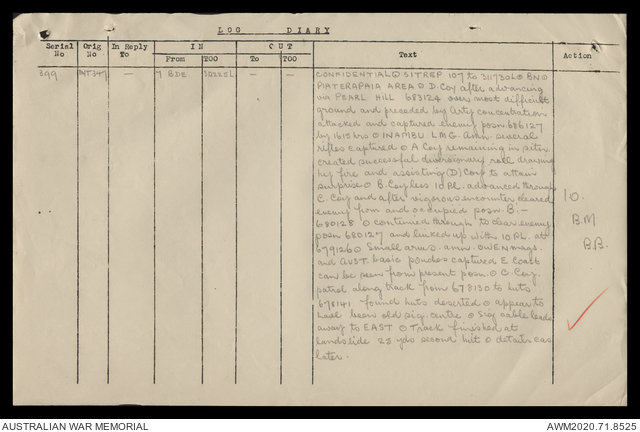 LOG DIARY
Serial No Orig No In Reply To IN From TOO OUT To TOO Text Action
399 INT347 — 7 BDE 302225L — — CONFIDENTIAL O SITREP 107 to 311730L O BN O
PIATERAPAIA AREA O D. Coy after advancing
via PEARL HILL 683124 over most difficult
ground and preceded by Arty concentration
attacked and captured enemy posn. 686127
by 1615 hrs O 1 NAMBU LMG. Amn. several
rifles captured O A Coy remaining in
created successful diversionary roll drawing
hy fire and assisting (D) Coy to attain
surprise O B. Coy less 10 PL. advanced through
C. Coy and after vigorous encounter cleared
enemy from and occupied posn. B. —
680128 O continued through to clear enemy
posn 680127 and linked up with 10 PL. at
679126 O Small area O. amn. OWEN mags.
and AUST. basic pouches captured E Coast
can be seen from present posn. O C. Coy.
patrol along track from 678130 to huts
678141 found huts deserted O appear to
have been old sig. centre O Sig cable leads
away to EAST O Track finished at
landslide 25 yds second hut O details cas
later.
10.
B.M
B.B.
AUSTRALIAN WAR MEMORIAL
AWM2020.71.8525